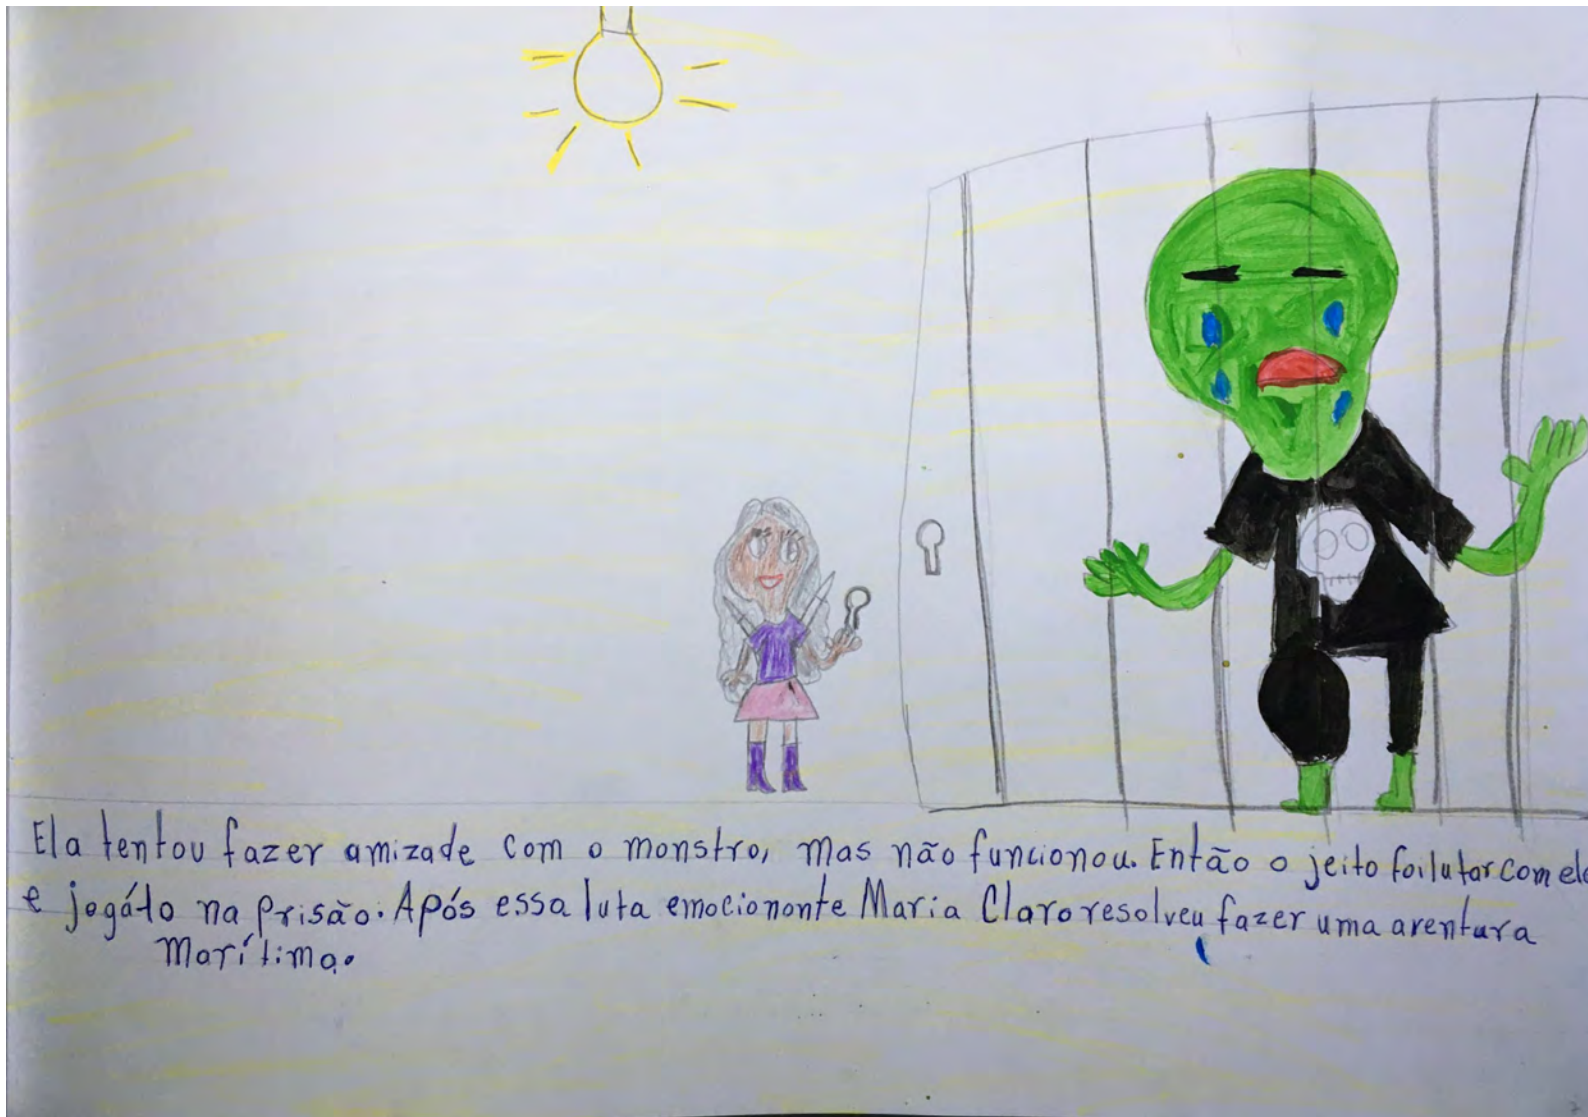 Ela tentou fazer amizade com o monstro, mas não funcionou. Então o jeito foi lutar com ele
e jogá-lo na prisão. Após essa luta emocionante Maria Clara resolveu fazer uma aventura
marítima.